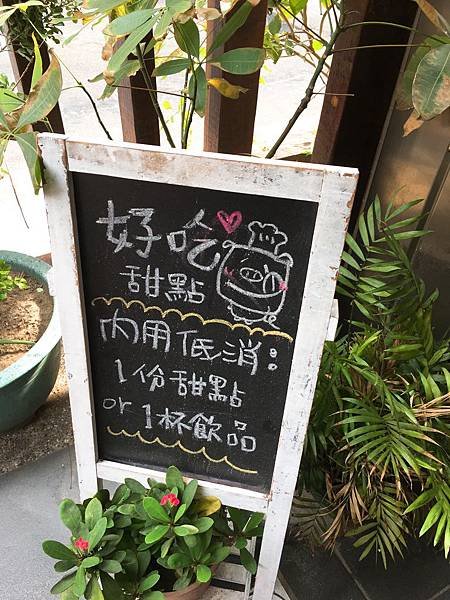 好哈
甜點
內用低消:
1份甜點
or 1杯飲品